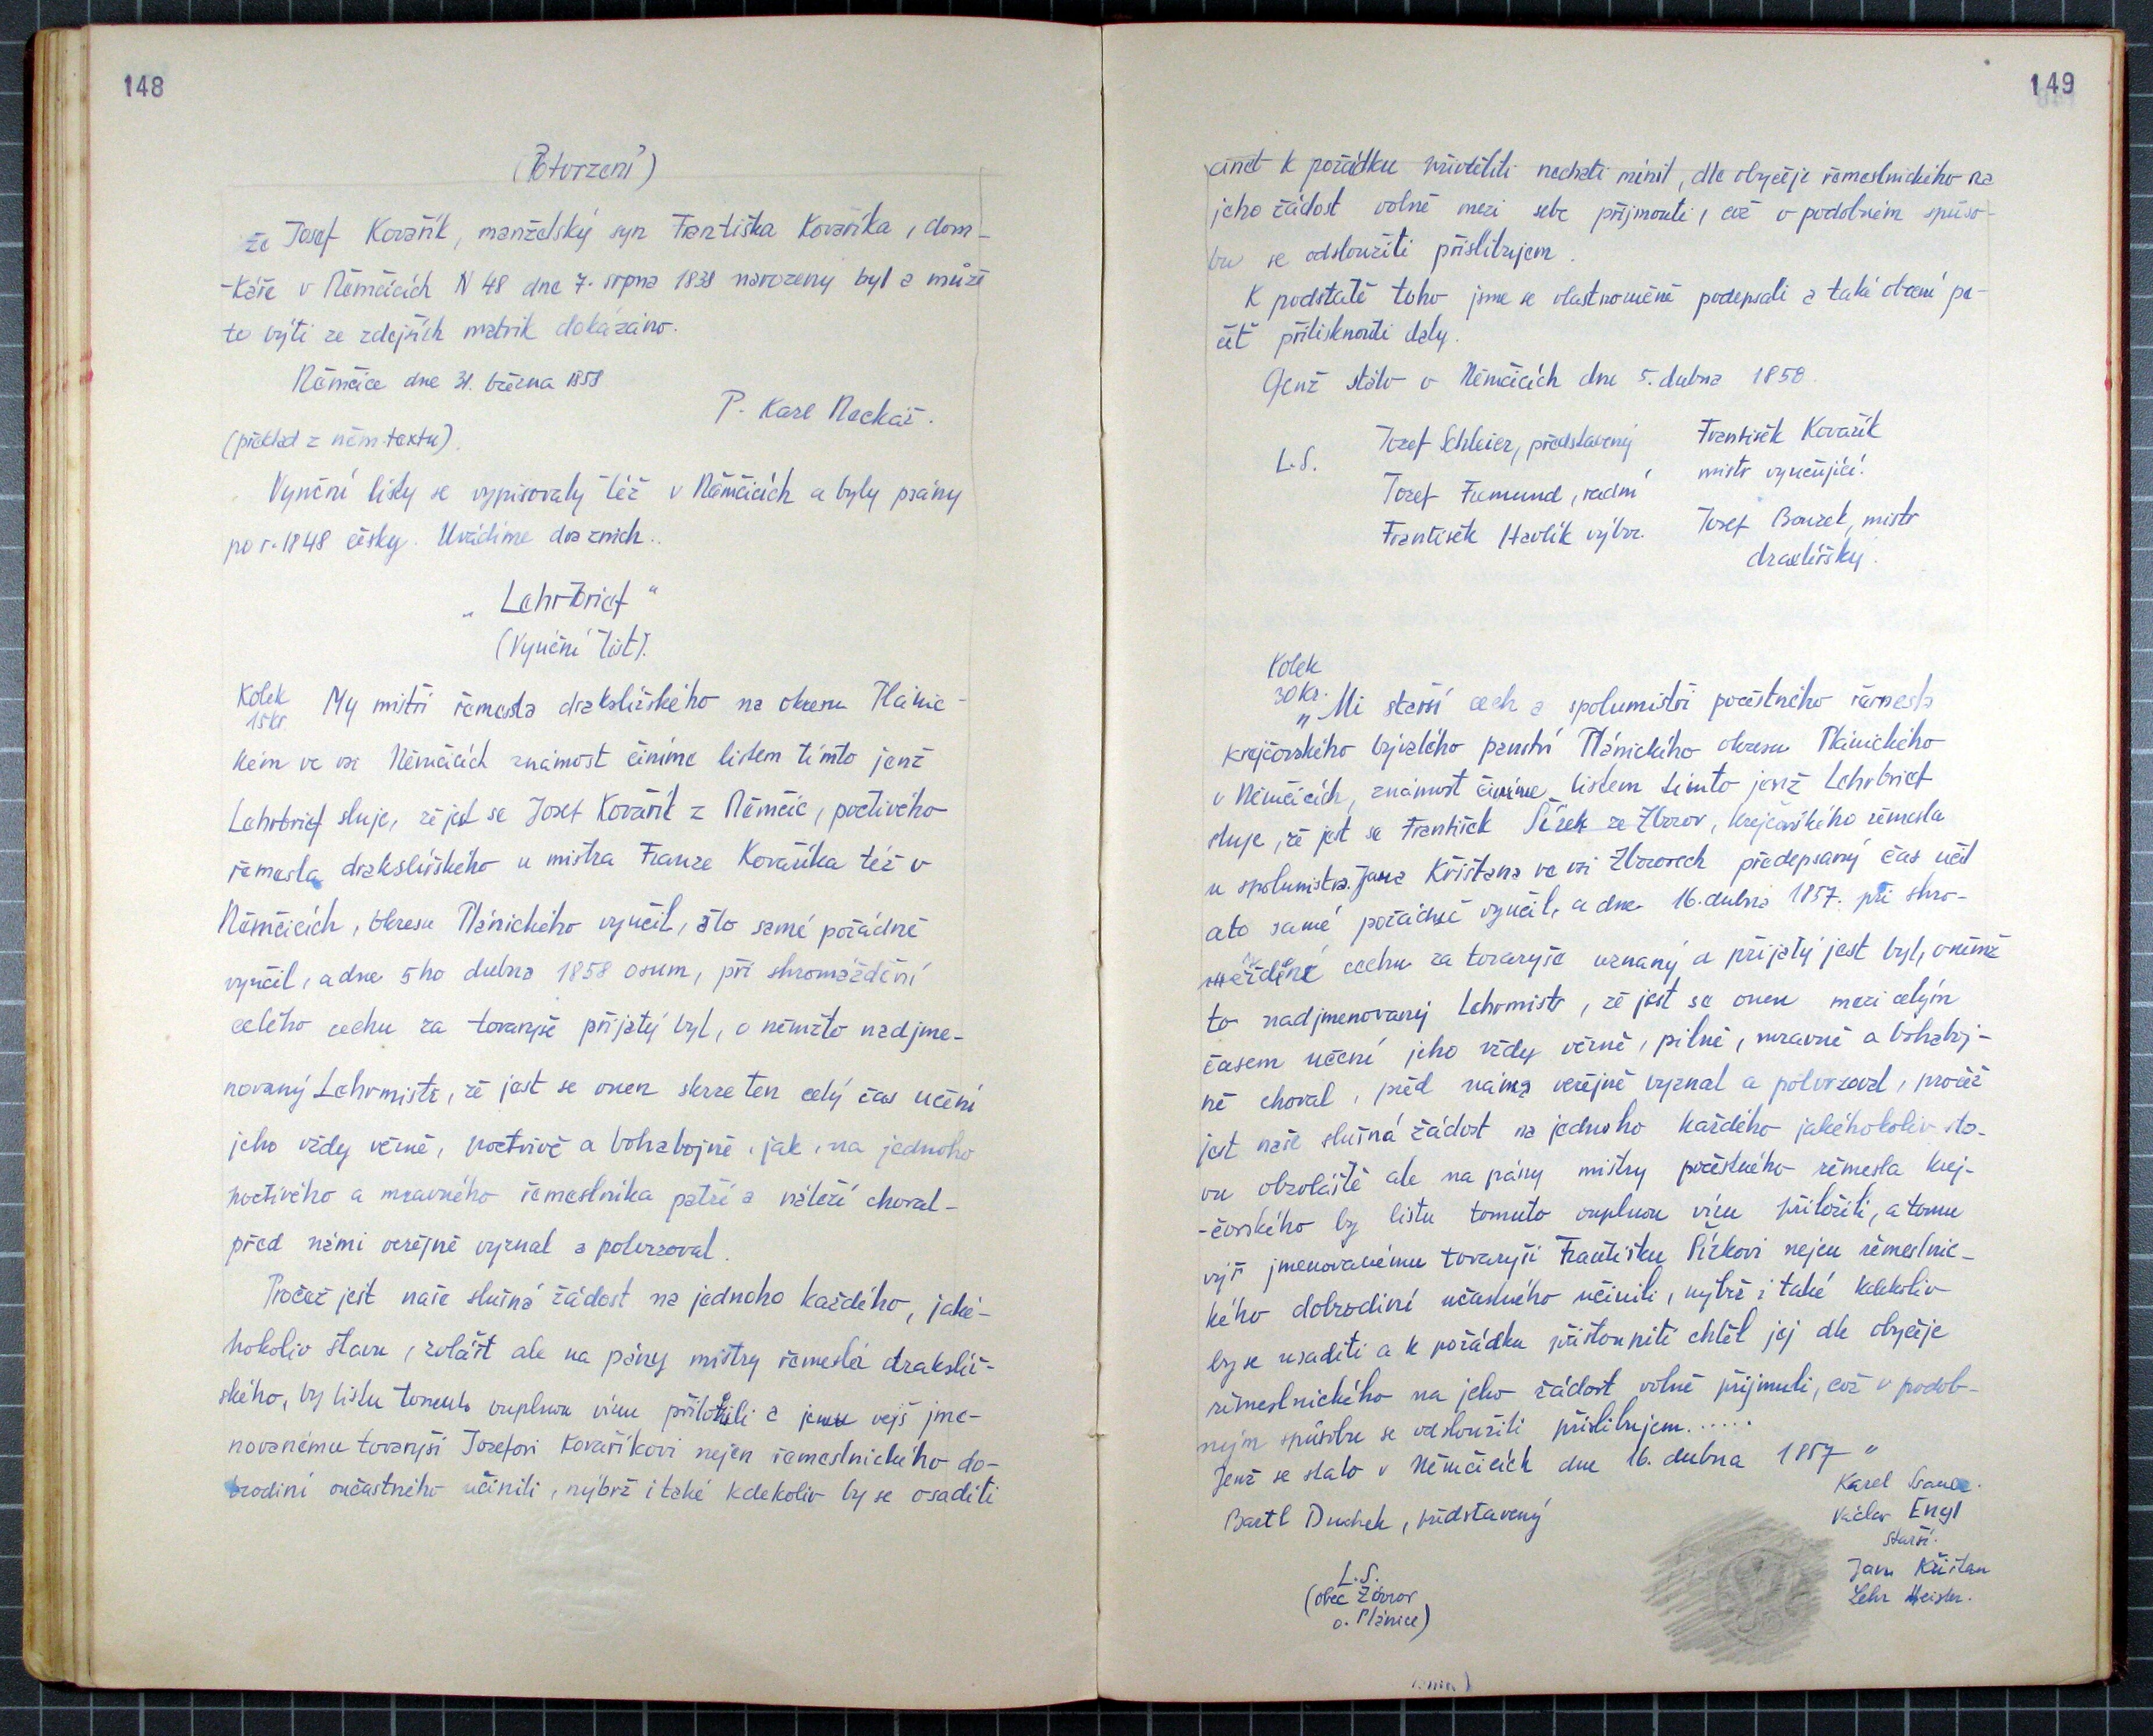 148
(Potvrzení)
že Josef Kovařík, manželský syn Františka Kovaříka, dom-
-káře v Němčicích N 48 dne 7. srpna 1838 narozený byl a může
to býti ze zdejších matrik dokázáno.
Němčice dne 31. března 1858
P. Karl Mackaž.
(překlad z něm. textu).
Výuční listy se vypisovaly též v Němčicích a byly psány
po r. 1848 česky. Uvádíme dva z nich..
„Lehrbrief“
(Výuční list).
Kolek
15kr.
My mistři řemesla drakslířského na okresu Plánic-
kém ve vsi Němčicích známost činíme listem tímto jenž
Lehrbrief sluje, že jest se Josef Kovářík z Němčic, poctivého
řemesla drakslířského u mistra Franze Kovaříka též v
Němčicích, okresu Plánického vyučil, a to samé pořádně
vyučil, a dne 5ho dubna 1858 osum, při shromáždění
celého cechu za tovaryše přijatý byl, o němžto nadjme-
novaný Lehrmistr, že jest se onen skrze ten celý čas učení
jeho vždy věrně, poctivě a bohabojně, jak, na jednoho
poctivého a mravného řemeslníka patří a náleží choval-
před námi veřejně vyznal a potvrzoval.
Pročež jest naše slušná žádost na jednoho každého, jaké-
hokoliv stavu, zvlášt ale na pány mistry řemesla drakslíř-
ského, by listu tomuto ouplnou víru přiložili a jemu vejš jme-
novanému tovaryši Jozefovi Kovaříkovi nejen řemeslnického do-
brodiní oučastného učinili, nýbrž i také kdekoliv by se osaditi
149
aneb k pořádku přivtěliti nechati mínil, dle obyčeje řemeslnického na
jeho žádost volně mezi sebe přijmouti, což v podobném spůso-
bu se odsloužiti přislibujem.
K podstatě toho jsme se vlastnoručně podepsali a také obecní pe-
čeť přitisknouti daly.
Genž stálo v Němčicích dne 5. dubna 1858.
L.S.
Jozef Schleier, představený
Jozef , radní
František Havlík výbor.
František Kovařík
mistr vyučující.
Josef Bouzek, mistr
drakslířský.
Kolek
30kr.
„Mi starší cech a spolumistři počestného řemesla
krejčovského bývalého panství Plánického okresu Plánického
v Němčicích, známost činíme listem tímto jenž Lehrbrief
sluje, že jest se František Šírek ze Zborov, krejčovského řemesla
u spolumistra Jana Křištana ve vsi Zborovech předepsaný čas učil
a to samé pořádně vyučil, a dne 16. dubna 1857. při shro-
máždění cechu za tovaryše uznaný a přijatý jest byl, o němž
to nadjmenovaný Lehrmistr, že jest se onen mezi celým
časem učení jeho vždy věrně, pilně, mravně a bohaboj-
ně choval, před náma veřejně vyznal a potvrzoval, pročež
jest naše slušná žádost na jednoho každého jakéhokoliv sta-
vu obzvláště ale na pány mistry počestného řemesla krej-
-čovského by listu tomuto ouplnou víru přiložili, a tomu
vejš jmenovanému tovaryši Františku Šírkovi nejen řemeslnic-
kého dobrodiní učastného učinili, nýbrž i také kdekoliv
by se usaditi a k pořádku přistoupiti chtěl jej dle obyčeje
řemeslnického na jeho žádost volně přijmuli, což v podob-
ným spůsobu se odsloužiti přislibujem.....
Jenž se stalo v Němčicích dne 16. dubna 1857“
Karel
Václav Engl
starší.
Bartl Duchek, představený
Jann Křištan
Lehr Meister.
L.S.
(obec Zborov
o. Plánice)